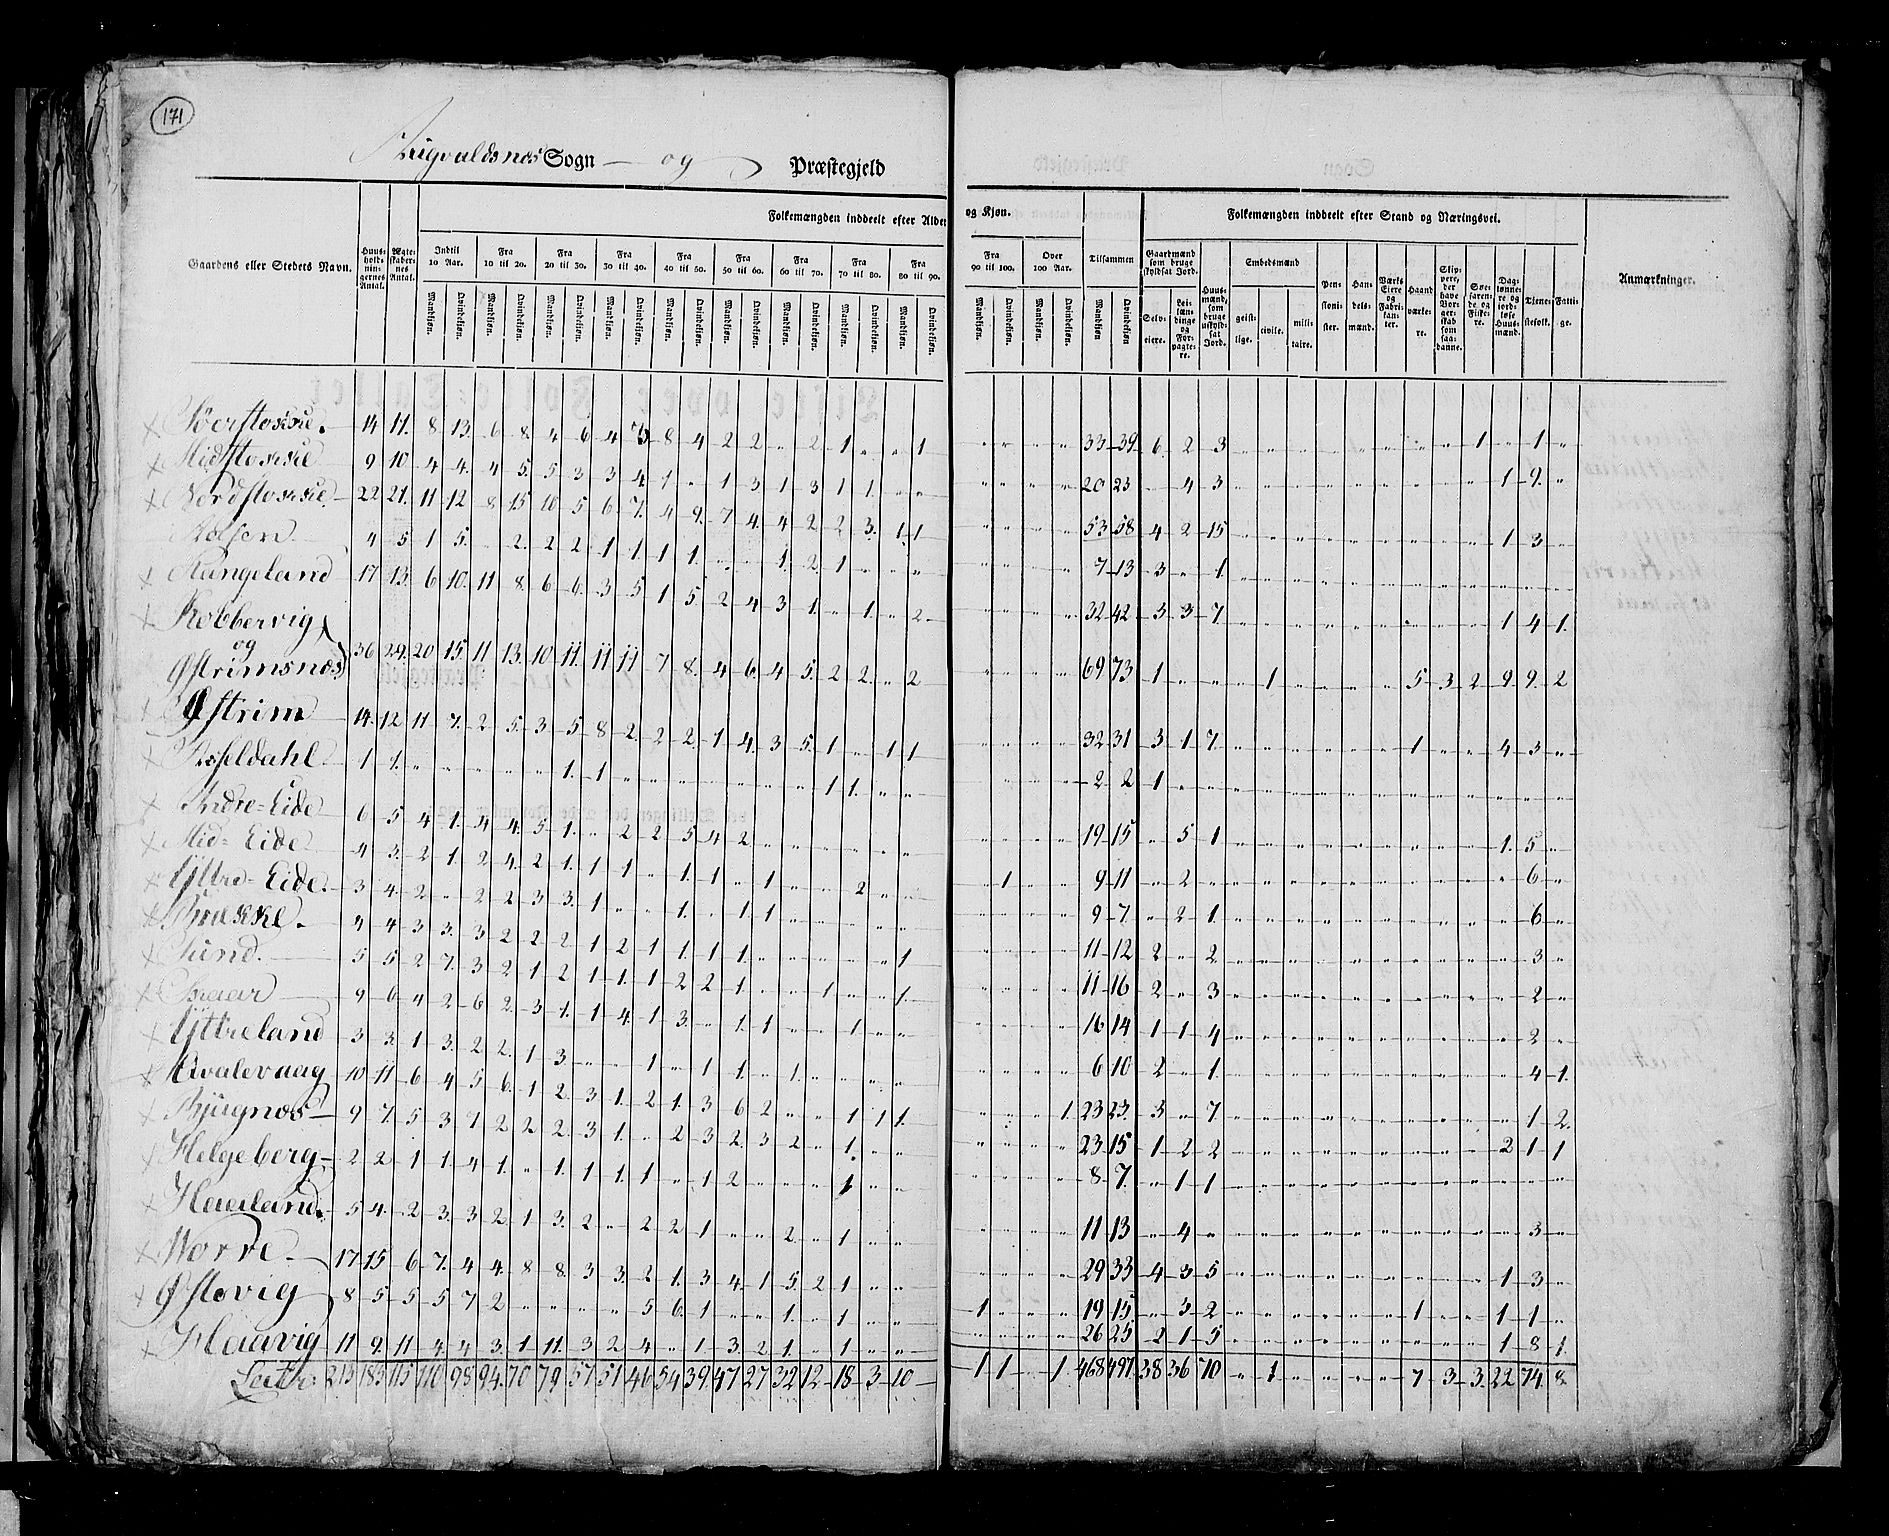 171
Augvaldsnæs Sogn — og Præstegjeld
Folkemængden inddeelt efter Alder og Kjøn.
Folkemængden inddeelt efter Stand og Næringsvei.
Gaardens eller Stedets Navn.
Huus-holdnin-gernes Antal.
Ægte-skaber-nes Antal.
Indtil 10 Aar.
Fra 10 til 20.
Fra 20 til 30.
Fra 30 til 40.
Fra 40 til 50.
Fra 50 til 60.
Fra 60 til 70.
Fra 70 til 80.
Fra 80 til 90.
Fra 90 til 100.
Over 100 Aar.
Tilsammen
Mandkjøn. Qvindekjøn.
Gaardmænd som bruge skyldsat Jord.
Selv-eiere.
Lei-læn-dinge og For-pagte-re.
Huus-mænd, som bruge uskyld-sat Jord.
Embedsmænd
geist-lige.
civile.
mili-taire.
Pen-sioni-ster.
Han-dels-mænd.
Værks Eiere og Fabri-kan-ter.
Haand værke-re.
Skip-pere, der have Bor-ger-skab som saa-danne.
Søe-faren-de og Fiske-re.
Dag-lønne-re og jord-løse Huus-mænd.
Tjene-stefolk.
Fatti-ge.
Anmærkninger.
Søerstokke. 14 11. 8 13. 6 8. 4 6 4 3 8 4 2 2 „ 2 1 „ „ 1 „ „ „ „ 33 39 6 2 3 „ „ „ „ „ „ „ „ 1 „ 1 „
Midstokke 9 10 4 4. 4 5. 5 3 3 4 1 „ 1 3 1 3 1 1. „ „ „ „ „ „ 20 23 „ 4 3 „ „ „ „ „ „ „ „ „ 1 9. „
Nordstokke 22 21. 11 12 8 15 10 5 6 7. 4 9. 7 4. 4 2 2 3. 1 1 „ „ „ „ 53 58 4 2 15 „ „ „ „ „ „ „ „ „ 1 3 „
4 5 1 5. „ 2. 2 2. 1 1. 1 1. „ „ 1. 2. 1 „ „ „ „ „ „ „ 7 13 3 „ 1. „ „ „ „ „ „ „ „ „ „ „ „
Kangeland 17 13. 6 10. 11 8. 6 6. 3 5 1 5. 2 4 3 1. „ 1. „ 2 „ „ „ „ 32 42 3 3 7 „ „ „ „ „ „ „ „ „ 1 4 1.
Kobbervig
og
Østrimsnæs 36 29. 20 15. 11 13. 10 11. 11 11 7 8. 4 6. 4 5. 2 2. „ 2 „ „ „ „ 69 73 1 „ „ „ 1 „ „ „ „ 5 3 2 9 9. 2
Østrim 14 12 11 7. 2 5. 3 5. 8 2. 2 2. 1 4. 3 5. 1 „ 1 1 „ „ „ „ 32 31 3 1 7 „ „ „ „ „ „ 1 „ „ 4 3 „
1 1. „ „ „ „ „ 1. 1 „ „ „ „ „ „ „ 1 1. „ „ „ „ „ „ 2 2 1 „ „ „ „ „ „ „ „ „ „ „ „ „ „
Indre-Eide 6 5 4 1. 4 4. 5 1. „ 2 2 5 4 2 „ „ „ „ „ „ „ „ „ „ 19 15 „ 5 1 „ „ „ „ „ „ „ „ „ 1. 5 „
Mid-Eide 4 3. 2 1. 2 4. 2 1. 1 1 „ 1. 1 „ 1 „ „ 2 „ „ „ 1 „ „ 9 11 „ 2 „ „ „ „ „ „ „ „ „ „ „ 6 „
Yttre-Eide. 3 4. 2 „ 2 2 3 3. 1 „ „ 1. „ 1. 1 „ „ „ „ „ „ „ „ „ 9 7. „ 2 1. „ „ „ „ „ „ „ „ „ „ 6 „
Brekke. 4 4 3 3. 3 2 2 2 1 2 1 1. 1 1. „ „ „ „ „ 1 „ „ „ „ 11 12 2 „ 2. „ „ „ „ „ „ „ „ „ „ 3 „
Sund. 5 5 2 7. 3 2 1 2 1 1. 1 2 2 1. „ „ 1 „ „ 1. „ „ „ „ 11 16 2 „ 3 „ „ „ „ „ „ „ „ „ „ 2 „
9 6 4 2 6 2. 3 1. 1 4. 1 3. „ 1. 1 „ „ 1 „ „ „ „ „ „ 16 14 1 1 4 „ „ „ „ „ „ „ „ „ „ 2 „
Yttreland 3 3 1 3. 2 2. 1 3 „ „ 1 „ 1 1. „ 1. „ „ „ „ „ „ „ „ 6 10 2 „ 1. „ „ „ „ „ „ „ „ „ „ 4 1.
Qvalevaag 10 11 6 4 5 6. 1 2. 3 1. 2 1. 3 6 2 „ „ 1 1 1. „ „ „ 1. 23 23. 3 „ 7 „ „ „ „ „ „ „ „ „ „ 1 2.
Bjugnæs 9 7. 5 3 7 2 2 2. 3 1. „ 2 3 2. 3 2 „ 1. „ „ „ „ „ „ 23 15 1 2 2 „ „ „ „ „ „ „ „ „ 2 1 1
Helgeberg 2 2 1 1. 4 1. „ 1. 1 1. 1 „ 1 2 „ „ „ 1 „ „ „ „ „ „ 8 7. „ 1 1 „ „ „ „ „ „ „ „ „ „ „ „
Haaland. 5 4. 2 3. 3 2. 1 3. 2 „ 2 2 1 „ „ 2. „ 1 „ „ „ „ „ „ 11 13 „ 4 „ „ „ „ „ „ „ „ „ „ „ 3 „
Vorre 17 15 6 7. 4 4. 8 8. 3 3. 2 1. 3 4. 1 5. 2 1 „ „ „ „ „ „ 29 33 4 3 5 „ „ „ „ „ „ „ „ „ 1 3 „
Østevig 8 5 5 5 7 2 „ „ „ „ 5 6. 1 „ „ 1. „ 1 „ „ 1 „ „ „ 19 15 „ 3 2 „ „ „ „ „ „ 1 „ „ 1 1 „
Haavig 11 9. 11 4 4 3. 1 11. 3 2 4 „ 1. 3. 2 1. „ 1 „ „ „ „ „ „ 26 25 2 1 5 „ „ „ „ „ „ „ „ „ 1 8 1.
213 183 115 110 98 94. 70 79 57 51 46 54 39. 47 27 32 12 18 3 10 1 1 „ 1 468 497 38 36 70 „ 1 „ „ „ „ 7 3 3 22 74. 8